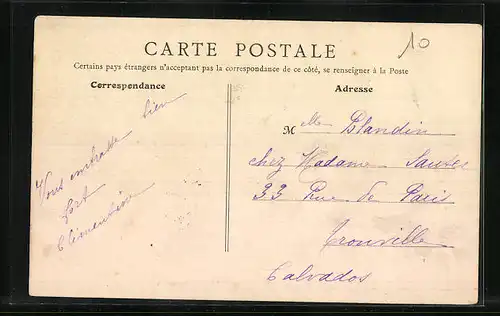 CARTE POSTALE
10
Certains pays étrangers n'acceptant pas la correspondance de ce côté, se renseigner à la Poste
Correspondance
Vous embrasse bien
fort
Clémentine
Adresse
Mlle Blandin
chez Madame
33 Rue de Paris
Trouville
Calvados